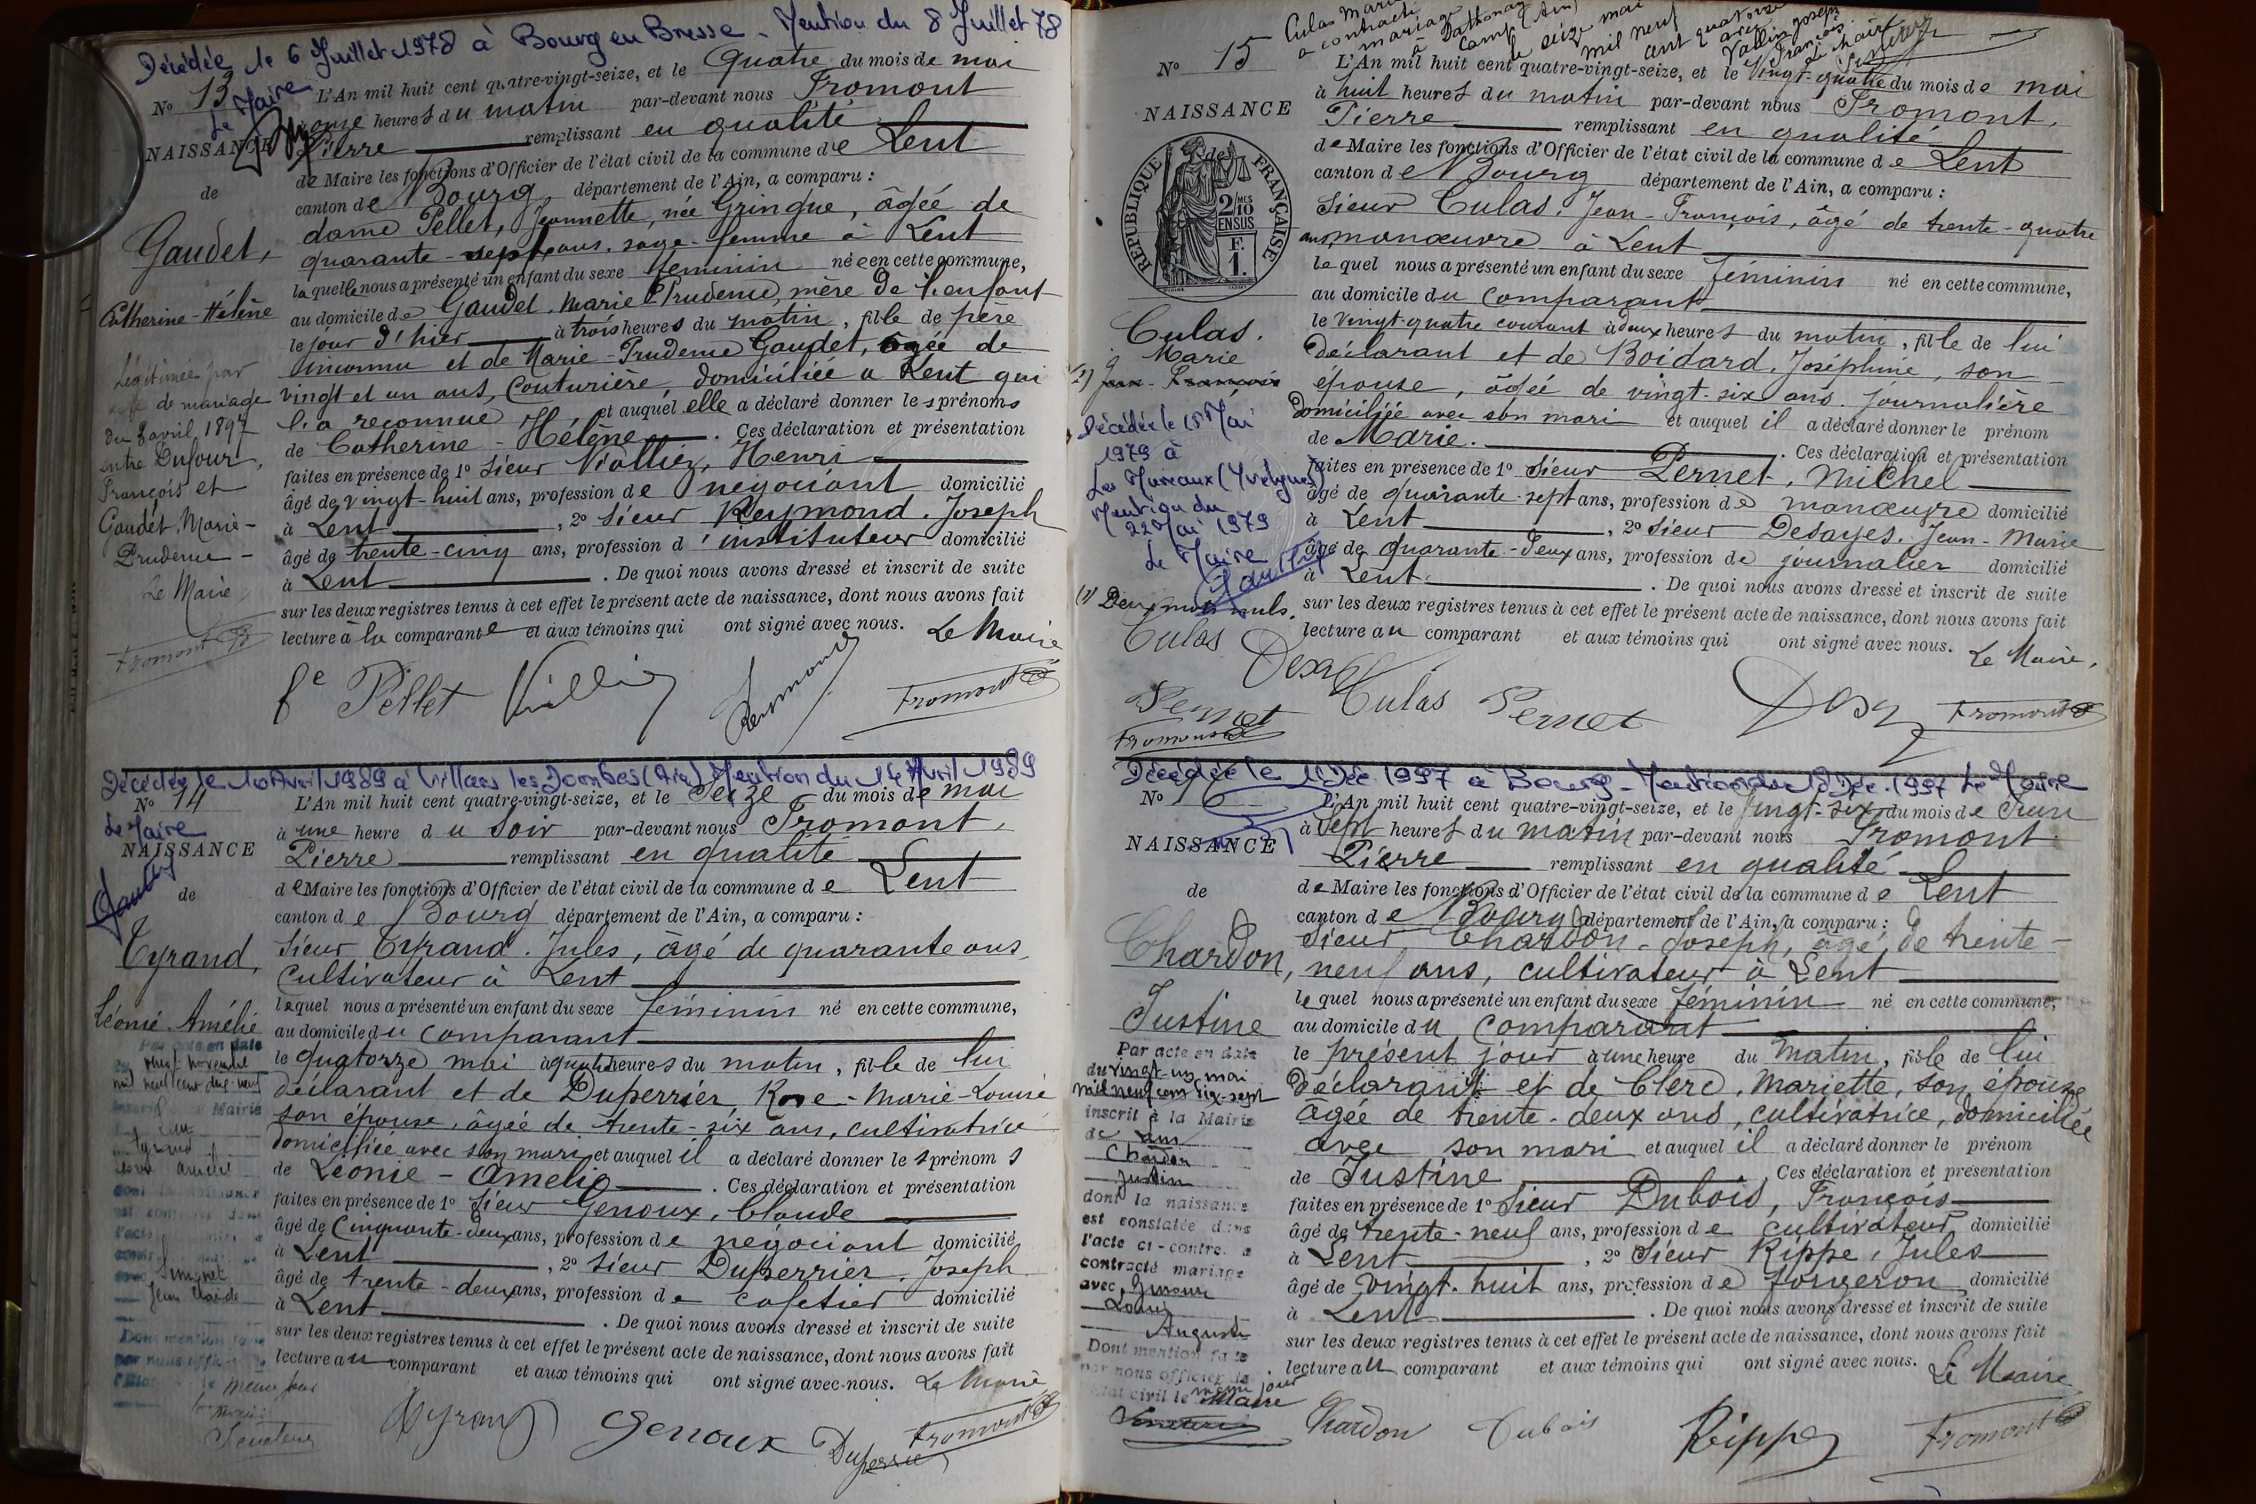 Décédée le 6 Juillet 1978 à Bourg en Bresse - Mention du 8 Juillet 78
Le Maire
No 13
NAISSANCE
de
Gaudet,
Catherine-Hélène
Légitimée par
acte de mariage
du 8 avril 1897
entre Dufour,
François et
Gaudet Marie-
Prudence -
Le Maire
Fromont
L'An mil huit cent quatre-vingt-seize, et le Quatre du mois de mai
à onze heures du matin par-devant nous Fromont
Pierre remplissant en qualité
de Maire les fonctions d'Officier de l'état civil de la commune de Lent
canton de Bourg département de l'Ain, a comparu :
dame Pellet, Jeannette, née Gringue, âgée de
quarante-sept ans, sage-femme à Lent
laquelle nous a présenté un enfant du sexe féminin née en cette commune,
au domicile de Gaudet, Marie Prudence, mère de l'enfant
le jour d'hier à trois heures du matin, fille de père
inconnu et de Marie-Prudence Gaudet, âgée de
vingt et un ans, couturière, domiciliée à Lent qui
l'a reconnue et auquel elle a déclaré donner les prénoms
de Catherine-Hélène. Ces déclaration et présentation
faites en présence de 1° Sieur Viallier, Henri
âgé de vingt-huit ans, profession de négociant domicilié
à Lent, 2° Sieur Reymond, Joseph
âgé de trente-cinq ans, profession d'instituteur domicilié
à Lent. De quoi nous avons dressé et inscrit de suite
sur les deux registres tenus à cet effet le présent acte de naissance, dont nous avons fait
lecture à la comparante et aux témoins qui ont signé avec nous. Le Maire
fe Pellet Reymond Fromont
Décédée le 10 Avril 1989 à Villars les Dombes (Ain) Mention du 14 Avril 1989
No 14
Le Maire
NAISSANCE
de
Tyrand,
Léonie-Amélie
Par acte en date
du neuf novembre
mil neuf cent dix-neuf
inscrit Mairie
Simonet
Jean Claude
Dont mention faite
par nous officier
même jour
L'An mil huit cent quatre-vingt-seize, et le Seize du mois de mai
à une heure du soir par-devant nous Fromont,
Pierre remplissant en qualité
de Maire les fonctions d'Officier de l'état civil de la commune de Lent
canton de Bourg département de l'Ain, a comparu :
Sieur Tyrand, Jules, âgé de quarante ans,
cultivateur à Lent
lequel nous a présenté un enfant du sexe féminin né en cette commune,
au domicile du comparant
le quatorze mai à quatre heures du matin, fille de lui
déclarant et de Duperrier, Rose-Marie-Louise
son épouse, âgée de trente-six ans, cultivatrice
domiciliée avec son mari et auquel il a déclaré donner les prénoms
de Léonie-Amélie. Ces déclaration et présentation
faites en présence de 1° Sieur Genoux, Claude
âgé de cinquante-deux ans, profession de négociant domicilié
à Lent, 2° Sieur Duperrier, Joseph
âgé de trente-deux ans, profession de cafetier domicilié
à Lent. De quoi nous avons dressé et inscrit de suite
sur les deux registres tenus à cet effet le présent acte de naissance, dont nous avons fait
lecture au comparant et aux témoins qui ont signé avec nous. Le Maire
Tyrand Genoux Duperrier Fromont
Culas Marie
a contracté
mariage
à Dathonay
Camp (Ain)
le seize mai
mil neuf
cent quatorze
avec
Vallin Joseph
François
Le Maire
No 15
NAISSANCE
RÉPUBLIQUE FRANÇAISE
2/10 MES
EN SUS
F.
1.
Culas.
Marie
(1) Jean-François
Décédée le 15 Mai
1979 à
Les Mureaux (Yvelynes)
Mention du
22 Mai 1979
Le Maire
(1) Deux mots nuls.
Culas
Pernet
Fromont
L'An mil huit cent quatre-vingt-seize, et le Vingt-quatre du mois de mai
à huit heures du matin par-devant nous Fromont,
Pierre remplissant en qualité
de Maire les fonctions d'Officier de l'état civil de la commune de Lent
canton de Bourg département de l'Ain, a comparu :
Sieur Culas, Jean-François, âgé de trente-quatre
ans, manœuvre à Lent
lequel nous a présenté un enfant du sexe féminin né en cette commune,
au domicile du comparant
le vingt-quatre courant à deux heures du matin, fille de lui
déclarant et de Boidard, Joséphine, son
épouse, âgée de vingt-six ans, journalière
domiciliée avec son mari et auquel il a déclaré donner le prénom
de Marie. Ces déclaration et présentation
faites en présence de 1° Sieur Pernet, Michel
âgé de quarante-sept ans, profession de manœuvre domicilié
à Lent, 2° Sieur Desayes, Jean-Marie
âgé de quarante-deux ans, profession de journalier domicilié
à Lent. De quoi nous avons dressé et inscrit de suite
sur les deux registres tenus à cet effet le présent acte de naissance, dont nous avons fait
lecture au comparant et aux témoins qui ont signé avec nous. Le Maire,
Culas Pernet Fromont
Décédée le 11 Déc. 1997 à Bourg - Mention du Déc. 1997 Le Maire
No 16
NAISSANCE
de
Chardon,
Justine
Par acte en date
du vingt-un mai
mil neuf cent dix-sept
inscrit à la Mairie
de
Chardon
Justine
dont la naissance
est constatée dans
l'acte ci-contre a
contracté mariage
avec
Louis
Auguste
Dont mention faite
par nous officier de
état civil le même jour
Maire
L'An mil huit cent quatre-vingt-seize, et le Vingt-six du mois de Juin
à sept heures du matin par-devant nous Fromont
Pierre remplissant en qualité
de Maire les fonctions d'Officier de l'état civil de la commune de Lent
canton de Bourg département de l'Ain, a comparu :
Sieur Chardon-Joseph, âgé de trente-
neuf ans, cultivateur à Lent
lequel nous a présenté un enfant du sexe féminin né en cette commune,
au domicile du comparant
le présent jour à une heure du matin, fille de lui
déclarant et de Clerc, Mariette, son épouse
âgée de trente-deux ans, cultivatrice, domiciliée
avec son mari et auquel il a déclaré donner le prénom
de Justine. Ces déclaration et présentation
faites en présence de 1° Sieur Dubois, François
âgé de trente-neuf ans, profession de cultivateur domicilié
à Lent, 2° Sieur Rippe, Jules
âgé de vingt-huit ans, profession de forgeron domicilié
à Lent. De quoi nous avons dressé et inscrit de suite
sur les deux registres tenus à cet effet le présent acte de naissance, dont nous avons fait
lecture au comparant et aux témoins qui ont signé avec nous. Le Maire
Chardon Dubois Rippe Fromont